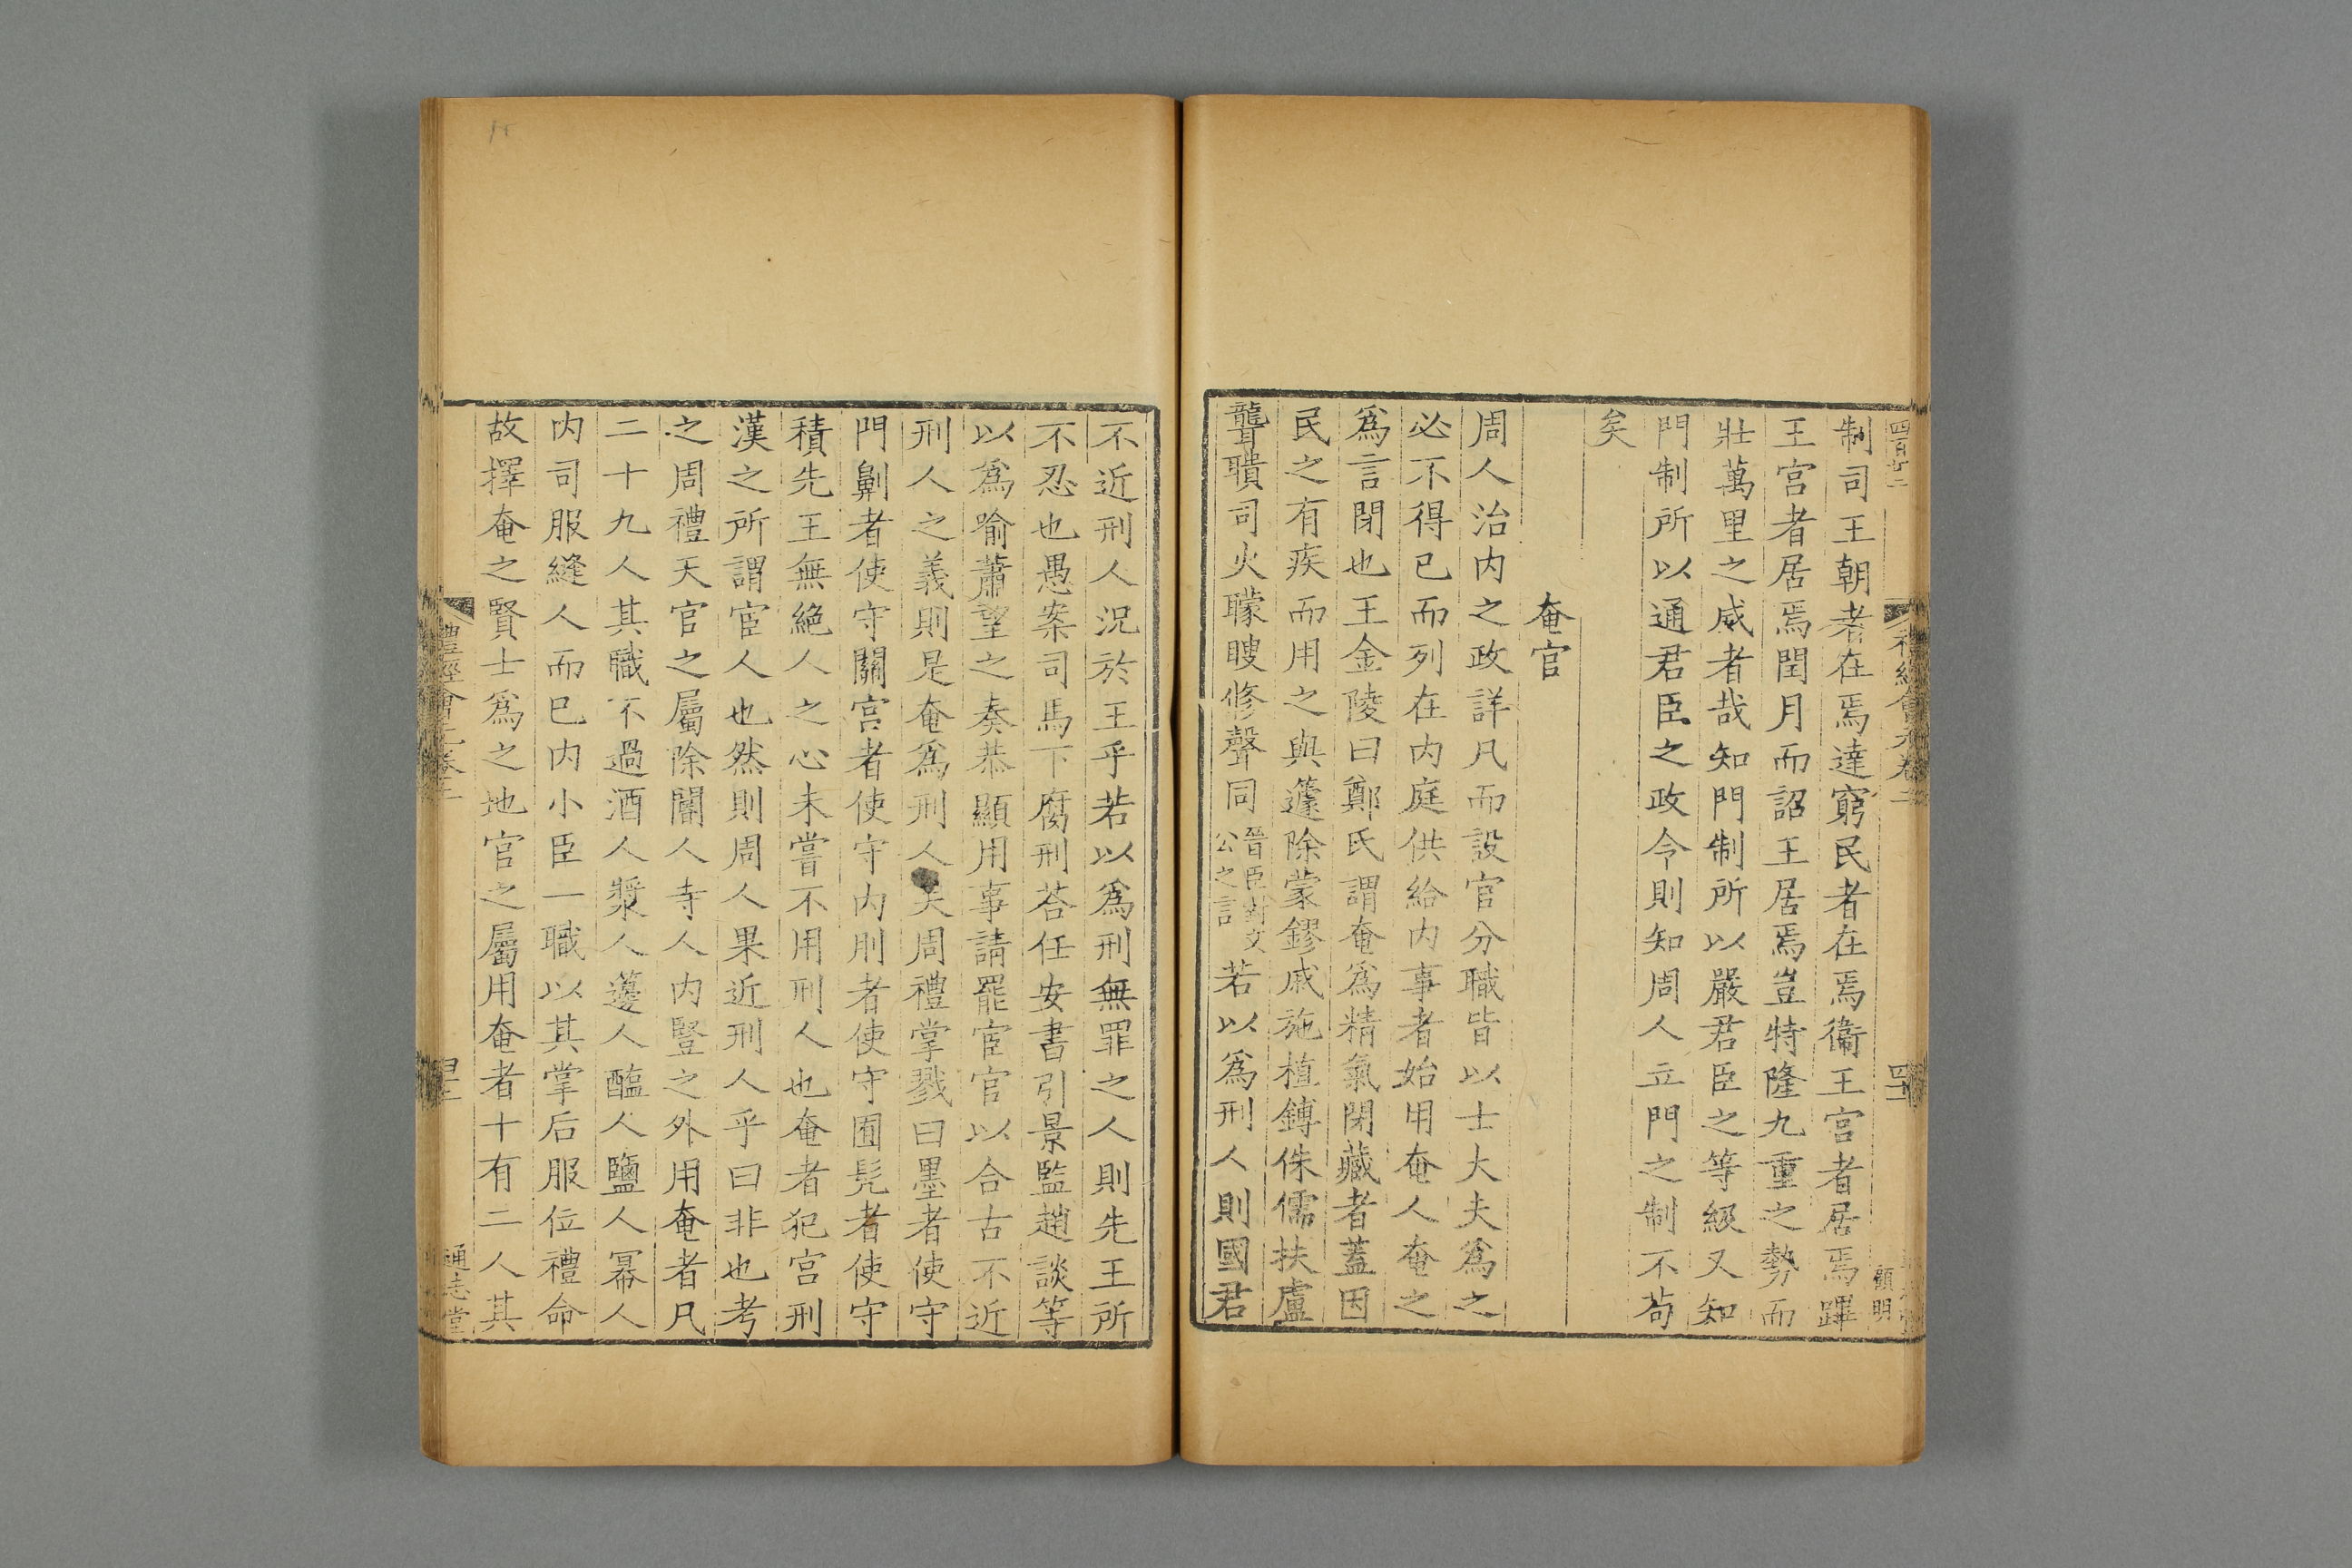 制司王朝者在焉達窮民者在焉衞王宮者居焉蹕
王宮者居焉閏月而詔王居焉豈特隆九重之勢而
壯萬里之威者哉知門制所以嚴君臣之等級又知
門制所以通君臣之政令則知周人立門之制不苟
矣
奄官
周人治内之政詳凡而設官分職皆以士大夫爲之
必不得已而列在内庭供給内事者始用奄人奄之
爲言閉也王金陵曰鄭氏謂奄爲精氣閉藏者蓋因
民之有疾而用之與籧除蒙鏐戚施植鏄侏儒扶盧
聾聵司火矇瞍修聲同晉臣對文公之言若以爲刑人則國君
不近刑人況於王乎若以爲刑無罪之人則先王所
不忍也愚案司馬下腐刑荅任安書引景監趙談等
以爲喻蕭望之奏恭顯用事請罷宦官以合古不近
刑人之義則是奄爲刑人矣周禮掌戮曰墨者使守
門劓者使守關宮者使守内刖者使守囿髡者使守
積先王無絶人之心未嘗不用刑人也奄者犯宮刑
漢之所謂宦人也然則周人果近刑人乎曰非也考
之周禮天官之屬除閽人寺人内豎之外用奄者凡
二十九人其職不過酒人漿人籩人醢人鹽人冪人
内司服縫人而已内小臣一職以其掌后服位禮命
故擇奄之賢士爲之地官之屬用奄者十有二人其
禮經會元卷二
通志堂
顧明